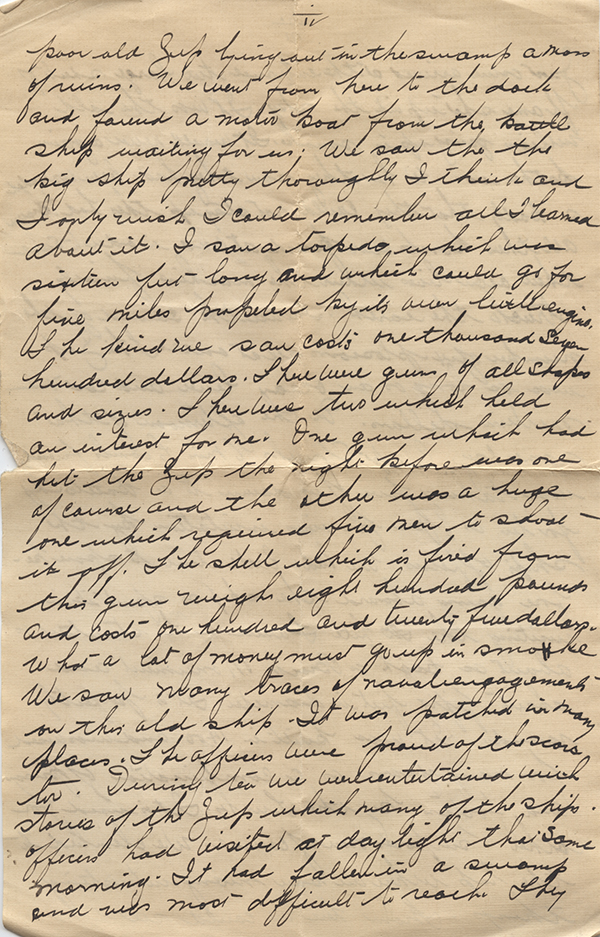 iv
poor old Zep lying out in the swamp a mass
of ruins. We went from here to the dock
and found a motor boat from the battle
ship waiting for us. We saw the the
big ship pretty thoroughly I think and
I only wish I could remember all I learned
about it. I saw a torpedo, which was
sixteen feet long and which could go for
five miles propeled by its own little engine.
The kind we saw costs one thousand seven
hundred dollars. There were guns of all shapes
and sizes. There were two which held
an interest for me. One gun which had
hit the Zep the night before was one
of course and the other was a huge
one which required five men to shoot
it off. The shell which is fired from
this gun weighs eight hundred pounds
and costs one hundred and twenty five dollars.
What a lot of money must go up in smoke
We saw many traces of naval engagements
on this old ship. It was patched in many
places. The officers were proud of the scars
too. During tea we were entertained with
stories of the Zep which many of the ships
officers had visited at day light that same
morning. It had fallen in a swamp
and was most difficult to reach. They